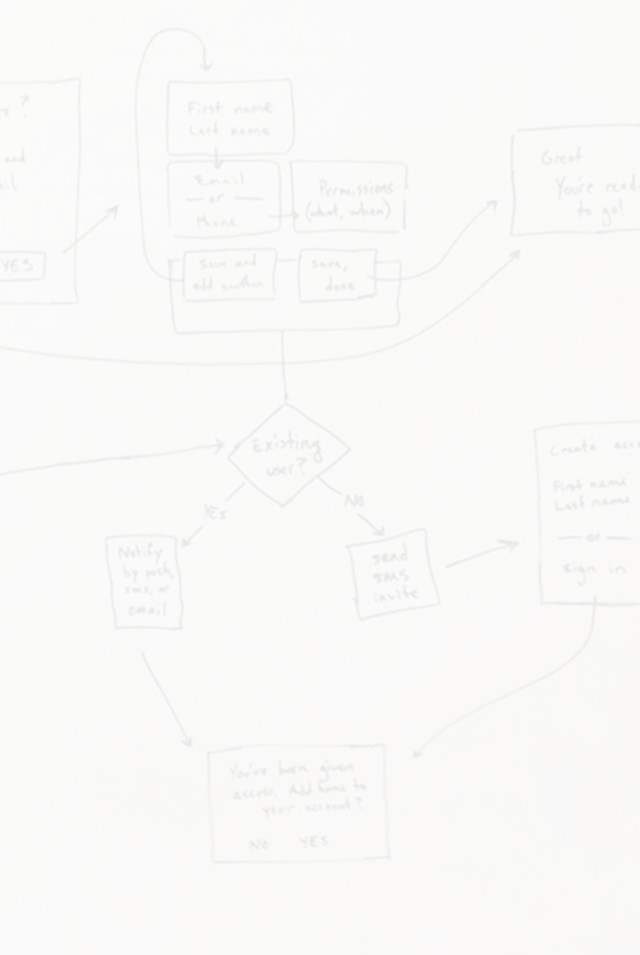 ?
and
YES
First name
Last name
Email
— or —
Phone
Permissions
(what, when)
save and
add another
save,
done
Great.
You're read
to go!
Existing
user?
YES
NO
Notify
by push,
sms, or
email
send
sms
invite
Create acco
First name
Last name
— or —
sign in
You've been given
access. Add home to
your account?
NO YES